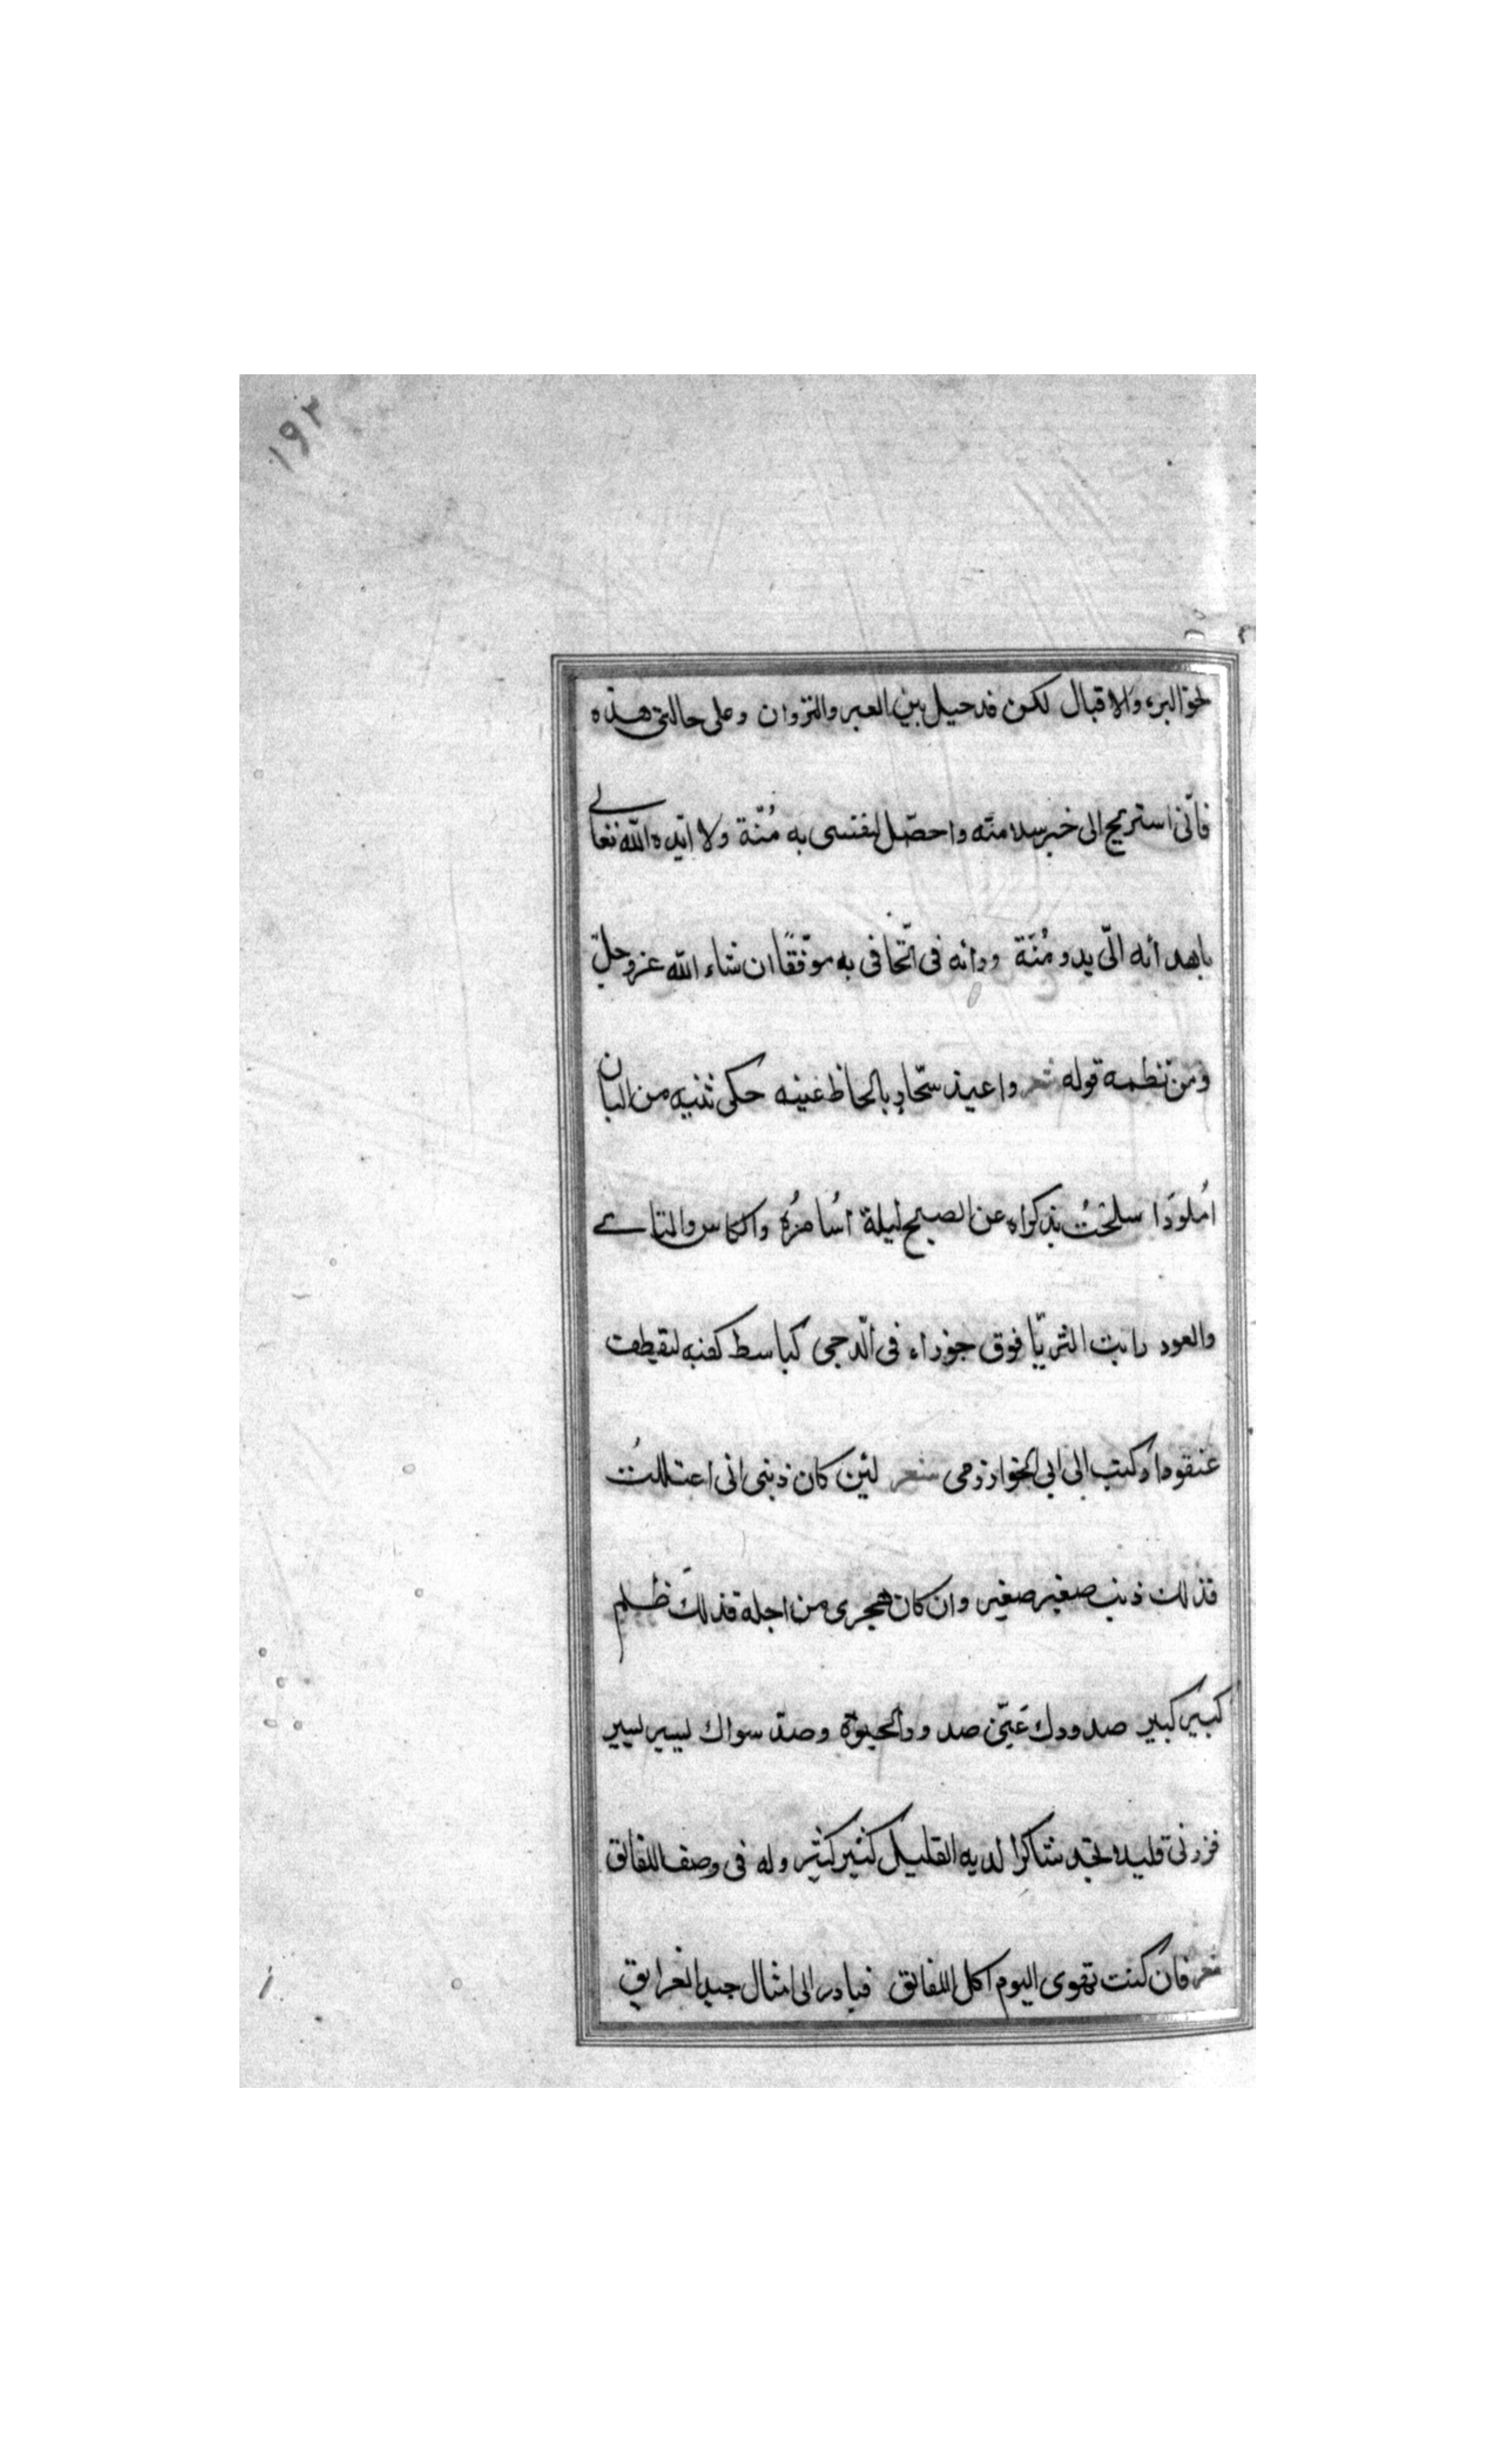 ١٩٢
نحو البرء والاقبال لكن قد حيل بين العير والنزوان وعلى حالتي هذه
فانّى استريح الى خبر سلامته واحصّل لنفسى به مُنّة ولا ايّده الله تعالى
باهدائه الىّ يد ومُنّة ورأيه فى اتّحافى به موّفقًا ان شاء الله عز وجلّ
ومن نظمه قوله شعر واغيد سحّار بالحاظ عينه حكى تثنيه من البان
اُملودا سلختُ بذكراه عن الصبح ليلة اُسامرُه والكاس والناى
والعود رايت الثريّا فوق جوزاء فى الّدجى كباسط كفيه لتقطف
عنقودا وكتب الى ابى الخوارزمى شعر لئن كان ذنبى انى اعتللتُ
فذلك ذنب صغير صغير وان كان هجرى من اجله فذلك ظلم
كبير كبير صدودك عنّى صدود الحيوة وصدّ سواك يسير يسير
فزرنى قليلا تجد شاكرا لديه القليل كثير كثير وله فى وصف اللقالق
شعر فان كنت تهوى اليوم اكل اللقالق فبادر الى امثال جيد الغرانيق